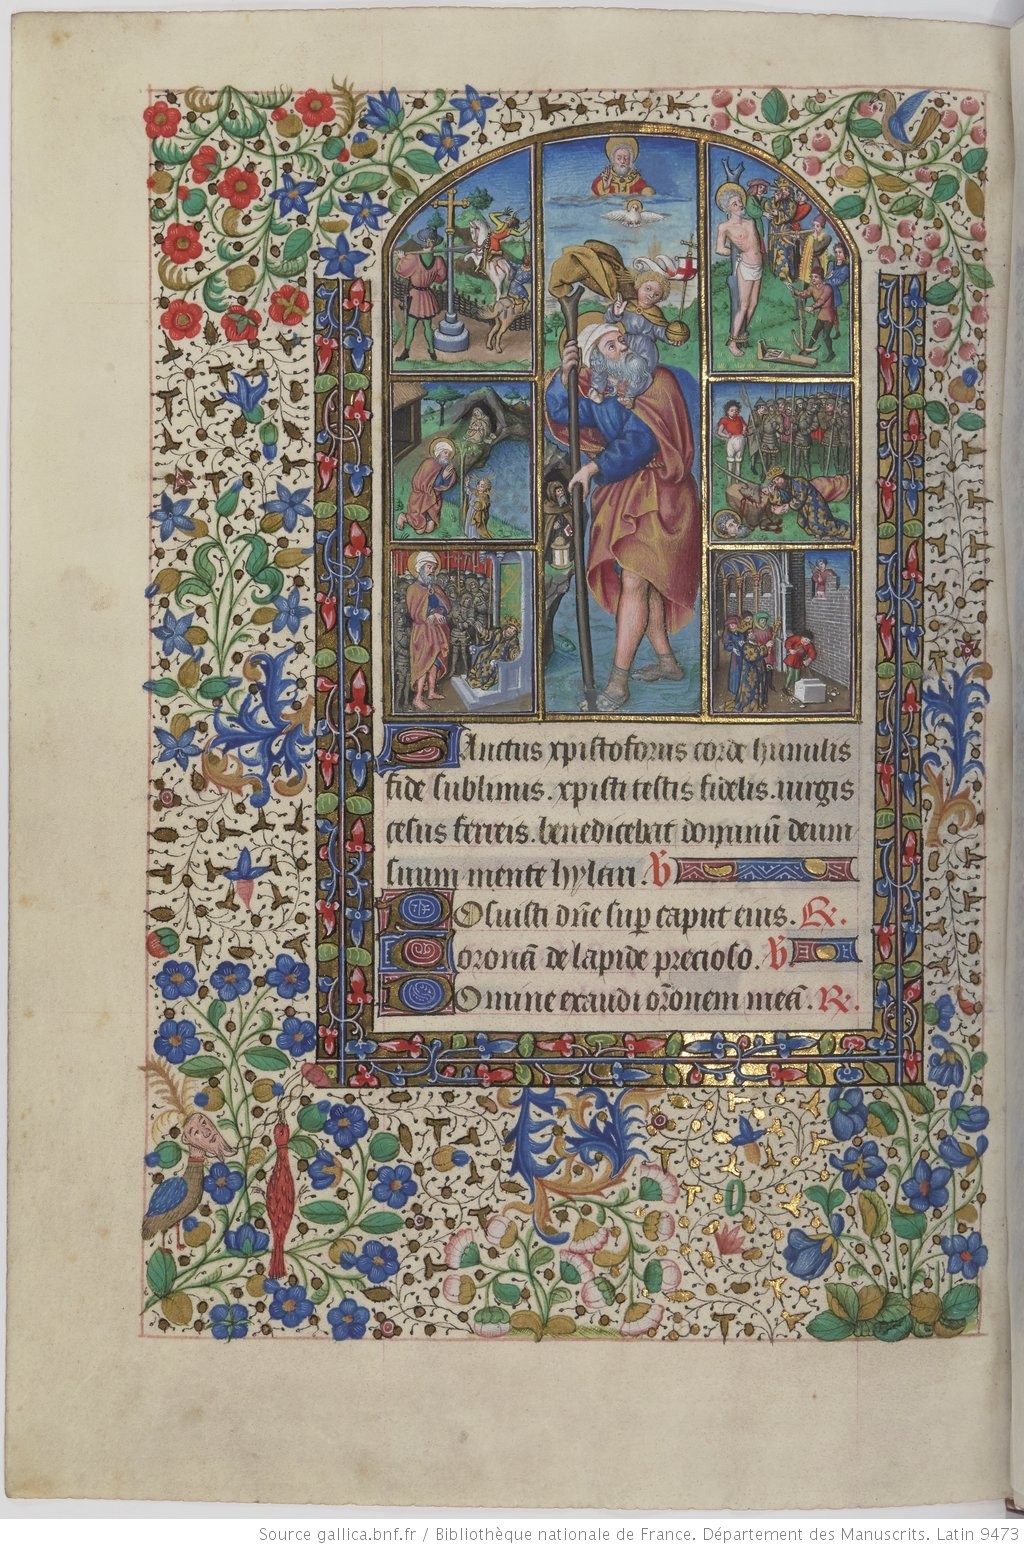 Sanctus xpistoforus corde humilis
fide sublimis. xpisti testis fidelis. uirgis
cesus ferreis. benedicebat dominū deum
suum mente hylari. V
Posuisti dn̄e sup caput eius. R.
Coronā de lapide precioso. V
Domine exaudi or̄onem meā. R.
Source gallica.bnf.fr / Bibliothèque nationale de France. Département des Manuscrits. Latin 9473